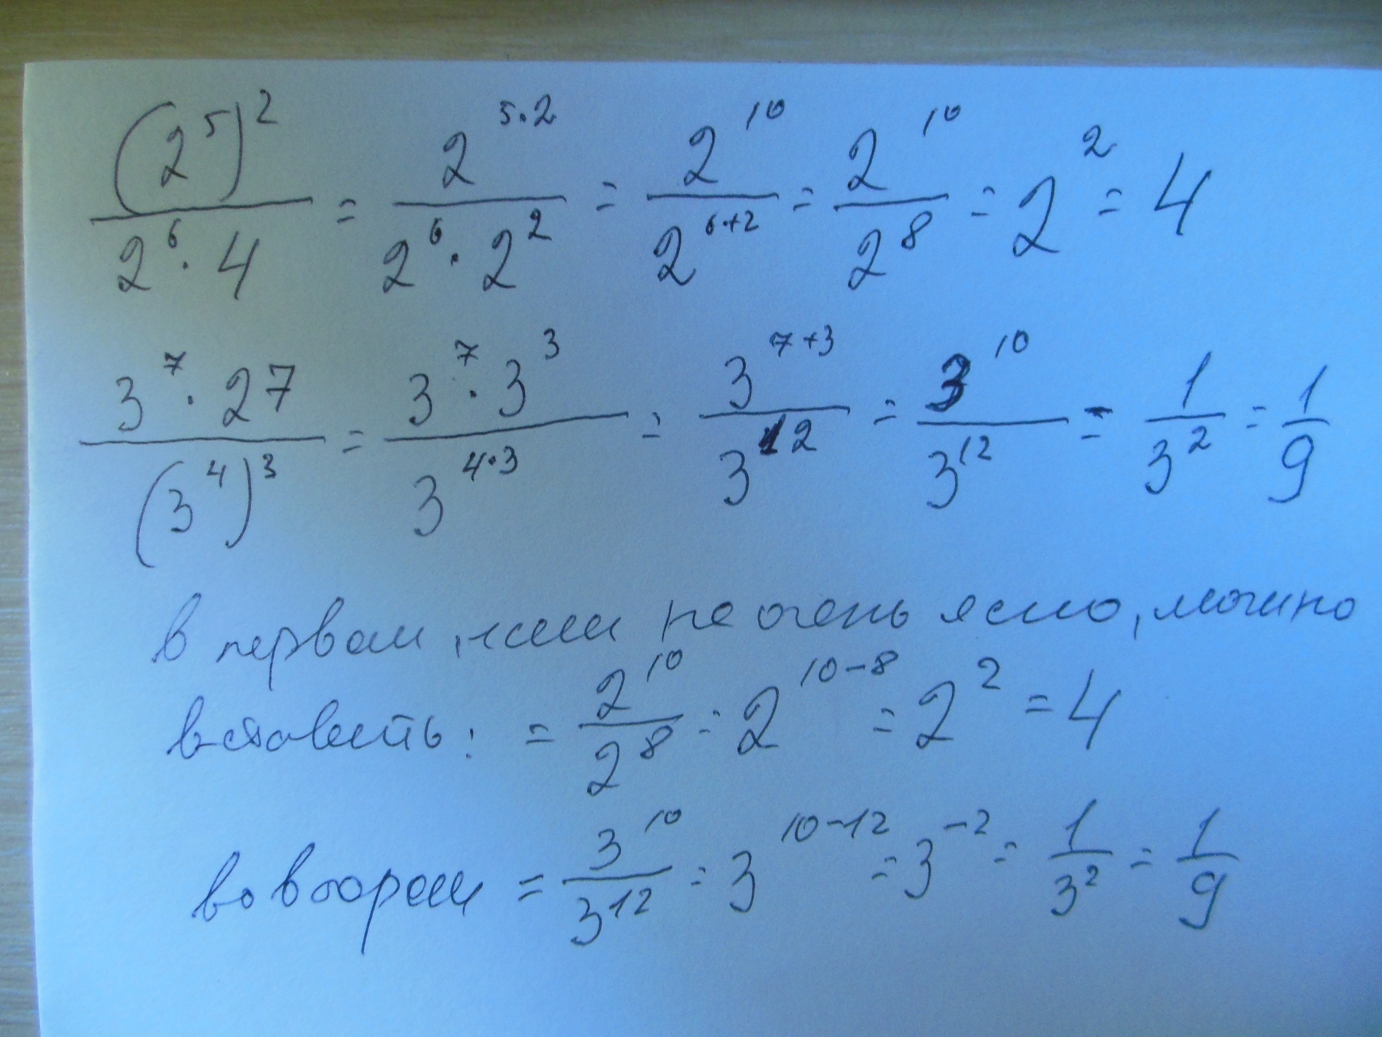 (2^5)^2 / (2^6 · 4) = 2^(5·2) / (2^6 · 2^2) = 2^10 / 2^(6+2) = 2^10 / 2^8 = 2^2 = 4
3^7 · 27 / (3^4)^3 = 3^7 · 3^3 / 3^(4·3) = 3^(7+3) / 3^12 = 3^10 / 3^12 = 1 / 3^2 = 1 / 9
в первом, если не очень ясно, можно
вставить: = 2^10 / 2^8 = 2^(10-8) = 2^2 = 4
во втором = 3^10 / 3^12 = 3^(10-12) = 3^(-2) = 1 / 3^2 = 1 / 9